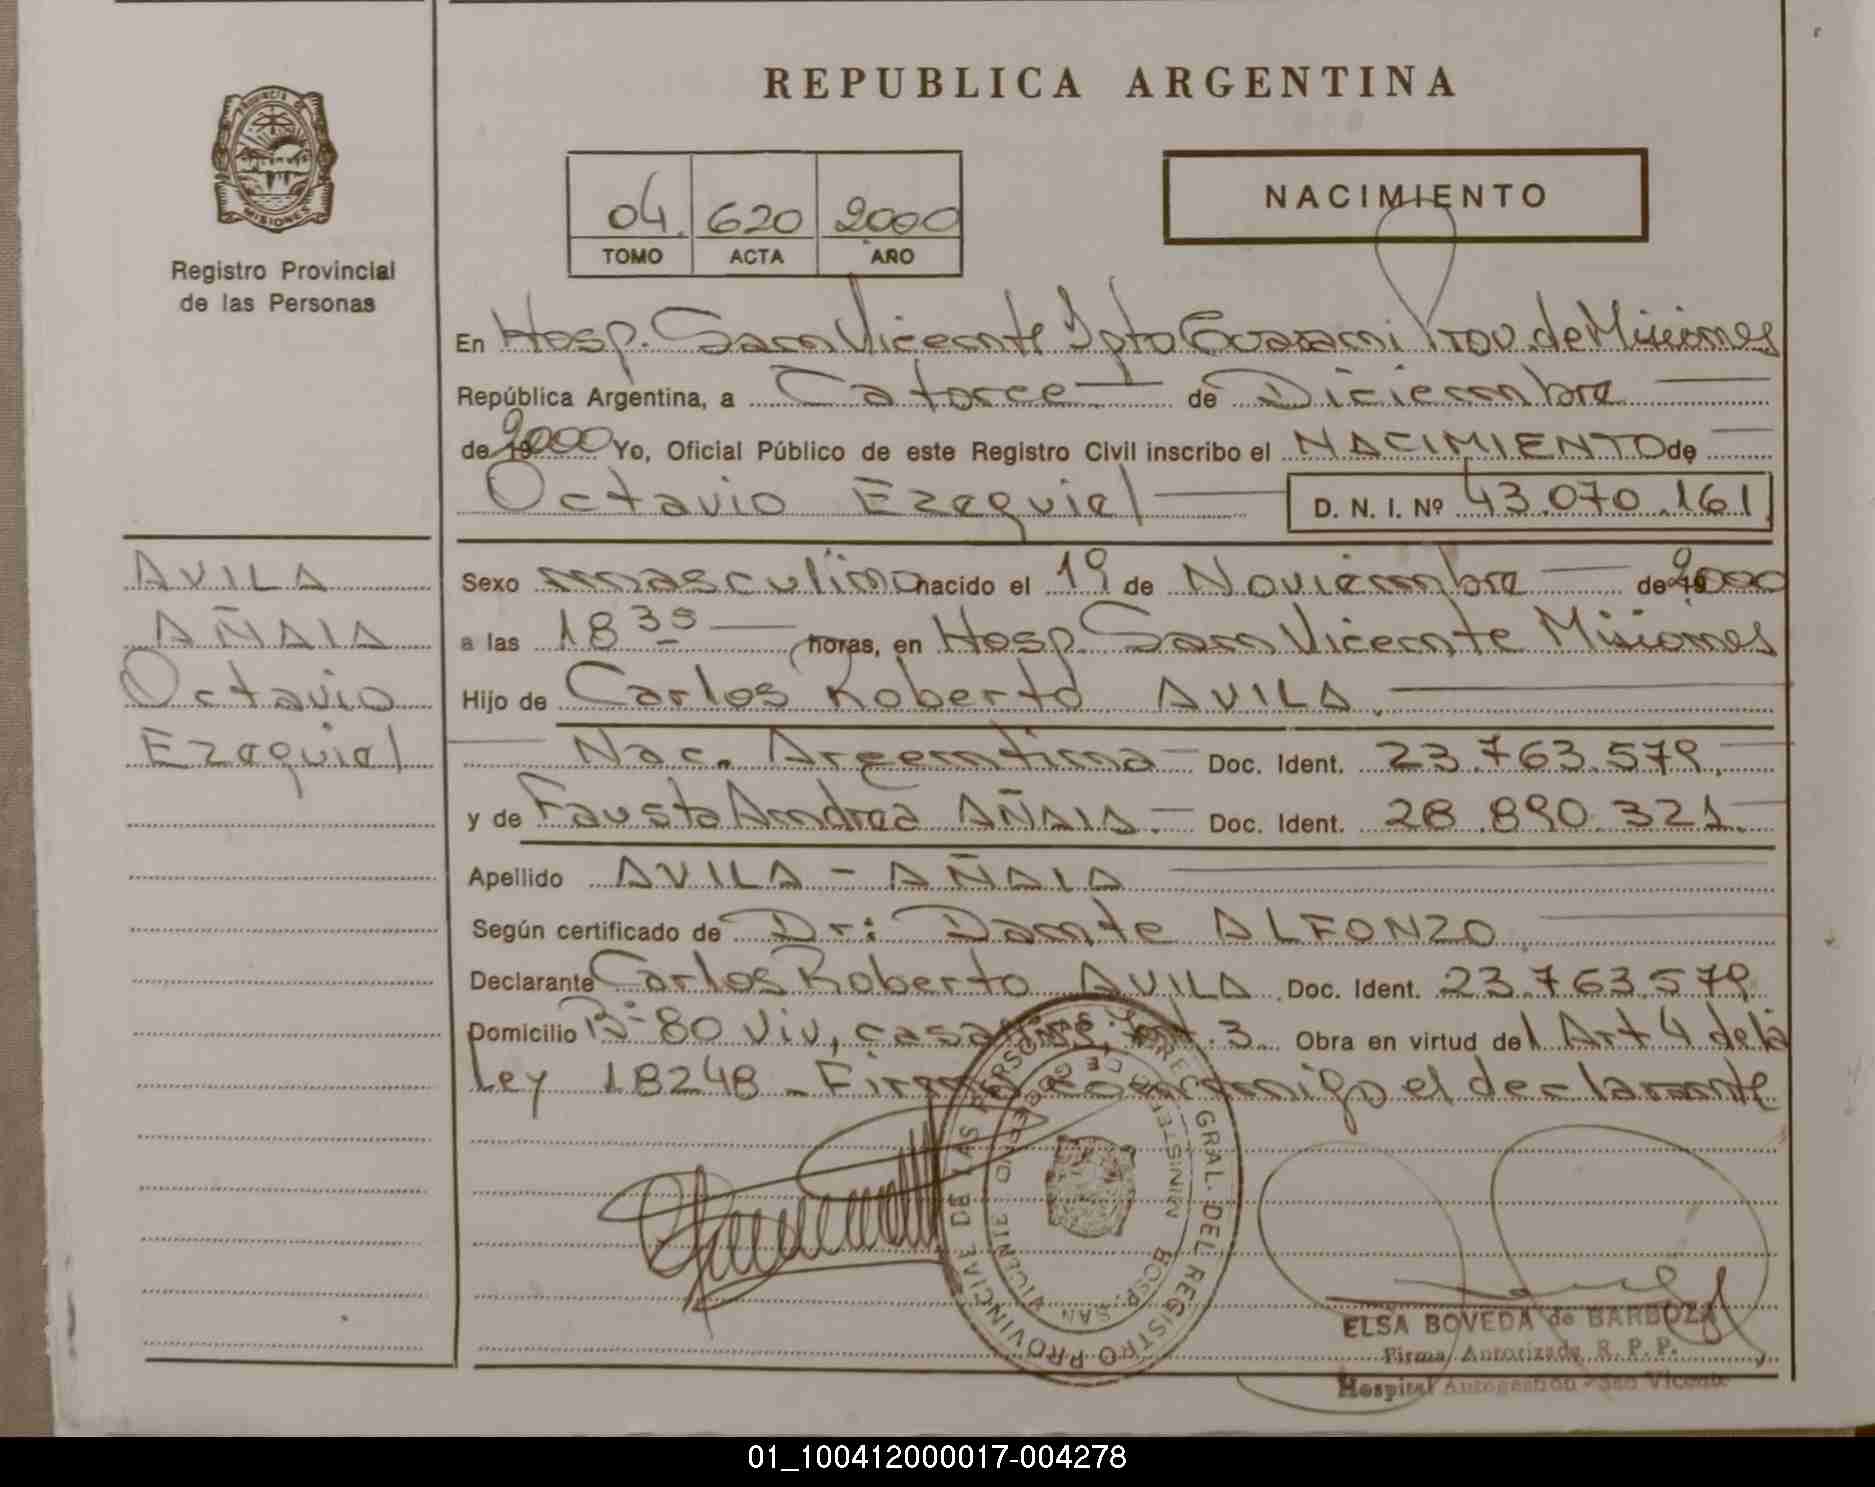 REPUBLICA ARGENTINA
PROVINCIA DE
MISIONES
Registro Provincial
de las Personas
04 620 2000
TOMO ACTA AÑO
NACIMIENTO
En Hosp. San Vicente Dpto Guarani Prov. de Misiones
República Argentina, a Catorce de Diciembre
de 2000 Yo, Oficial Público de este Registro Civil inscribo el NACIMIENTO de
Octavio Ezequiel D. N. I. Nº 43.070.161
AVILA
AÑAIA
Octavio
Ezequiel
Sexo masculino nacido el 19 de Noviembre de 2000
a las 18 35 horas, en Hosp. San Vicente Misiones
Hijo de Carlos Roberto AVILA.
Nac. Argentina Doc. Ident. 23.763.579.
y de Fausta Andrea AÑAIA. Doc. Ident. 28.890.321.
Apellido AVILA - AÑAIA
Según certificado de Dr: Dante ALFONZO
Declarante Carlos Roberto AVILA Doc. Ident. 23.763.579
Domicilio Bº 80 Viv, casa 3 Obra en virtud del Art 4 de la
Ley 18248 - Firma conmigo el declarante
GRAL. DEL REGISTRO PROVINCIAL DE LAS PERSONAS
HOSP. SAN VICENTE
ELSA BOVEDA de BARBOZA
Firma Autorizada R. P. P.
Hospital Autogestión San Vicente
01_100412000017-004278